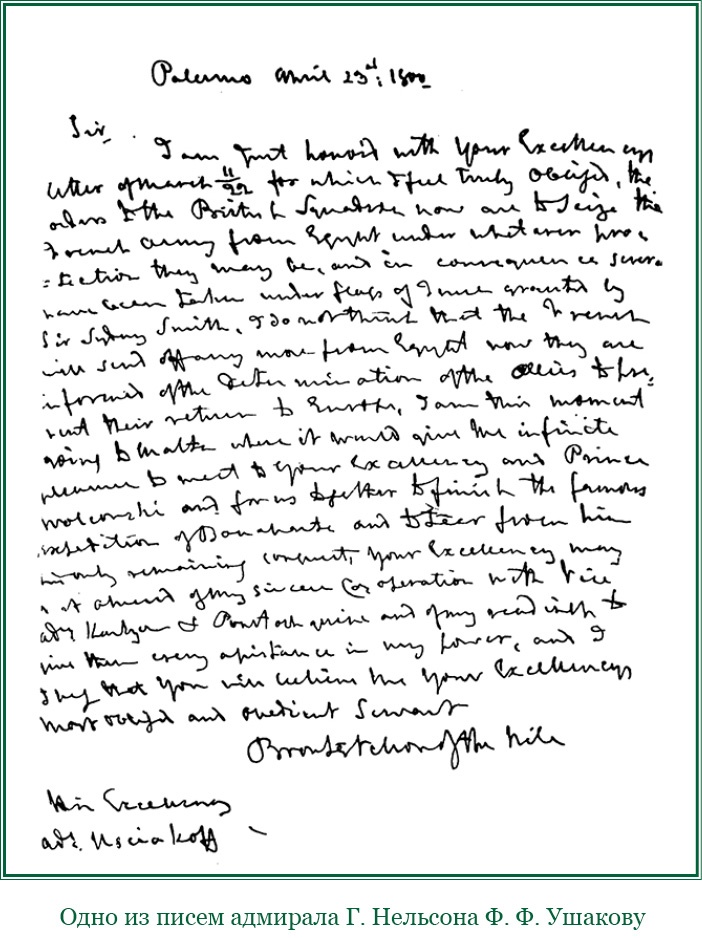 Palermo April 23d: 1800
Sir
I am Just honor'd with Your Excellencys
letter of March 11/22 for which I feel truly Obliged, the
orders to the British Squadron now are to seize the
French army from Egypt under whatever pro=
=tection they may be, and in consequence severa
have been taken under flags of Truce granted by
Sir Sydney Smith, I do not think that the French
will send off any more from Egypt now they are
informed of the determination of the Allies to pre=
vent their return to Europe, I am this moment
going to Malta where it would give me infinite
pleasure to meet to Your Excellency and Prince
Wolconski and for us together to finish the famous
expedition of Bonaparte and to tear from him
his only remaining conquest, Your Excellency may
of my sincere Cooperation with Vice
adl: and of my readiness to
give them every assistance in my power, and I
I beg that You will believe me Your Excellencys
most obliged and obedient Servant
Bronte Nelson of the Nile
His Excellency
adl: Usciakoff
Одно из писем адмирала Г. Нельсона Ф. Ф. Ушакову